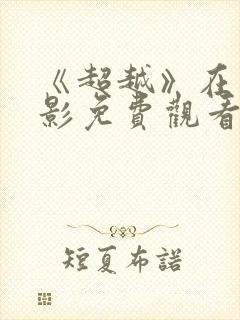 《超越》在
影免費觀看
短夏布諾